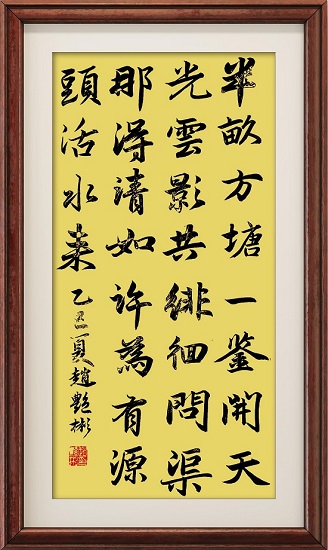 半畝方塘一鋻開天
光雲影共緋徊問渠
那得清如許為有源
頭活水来
乙夏趙艷彬